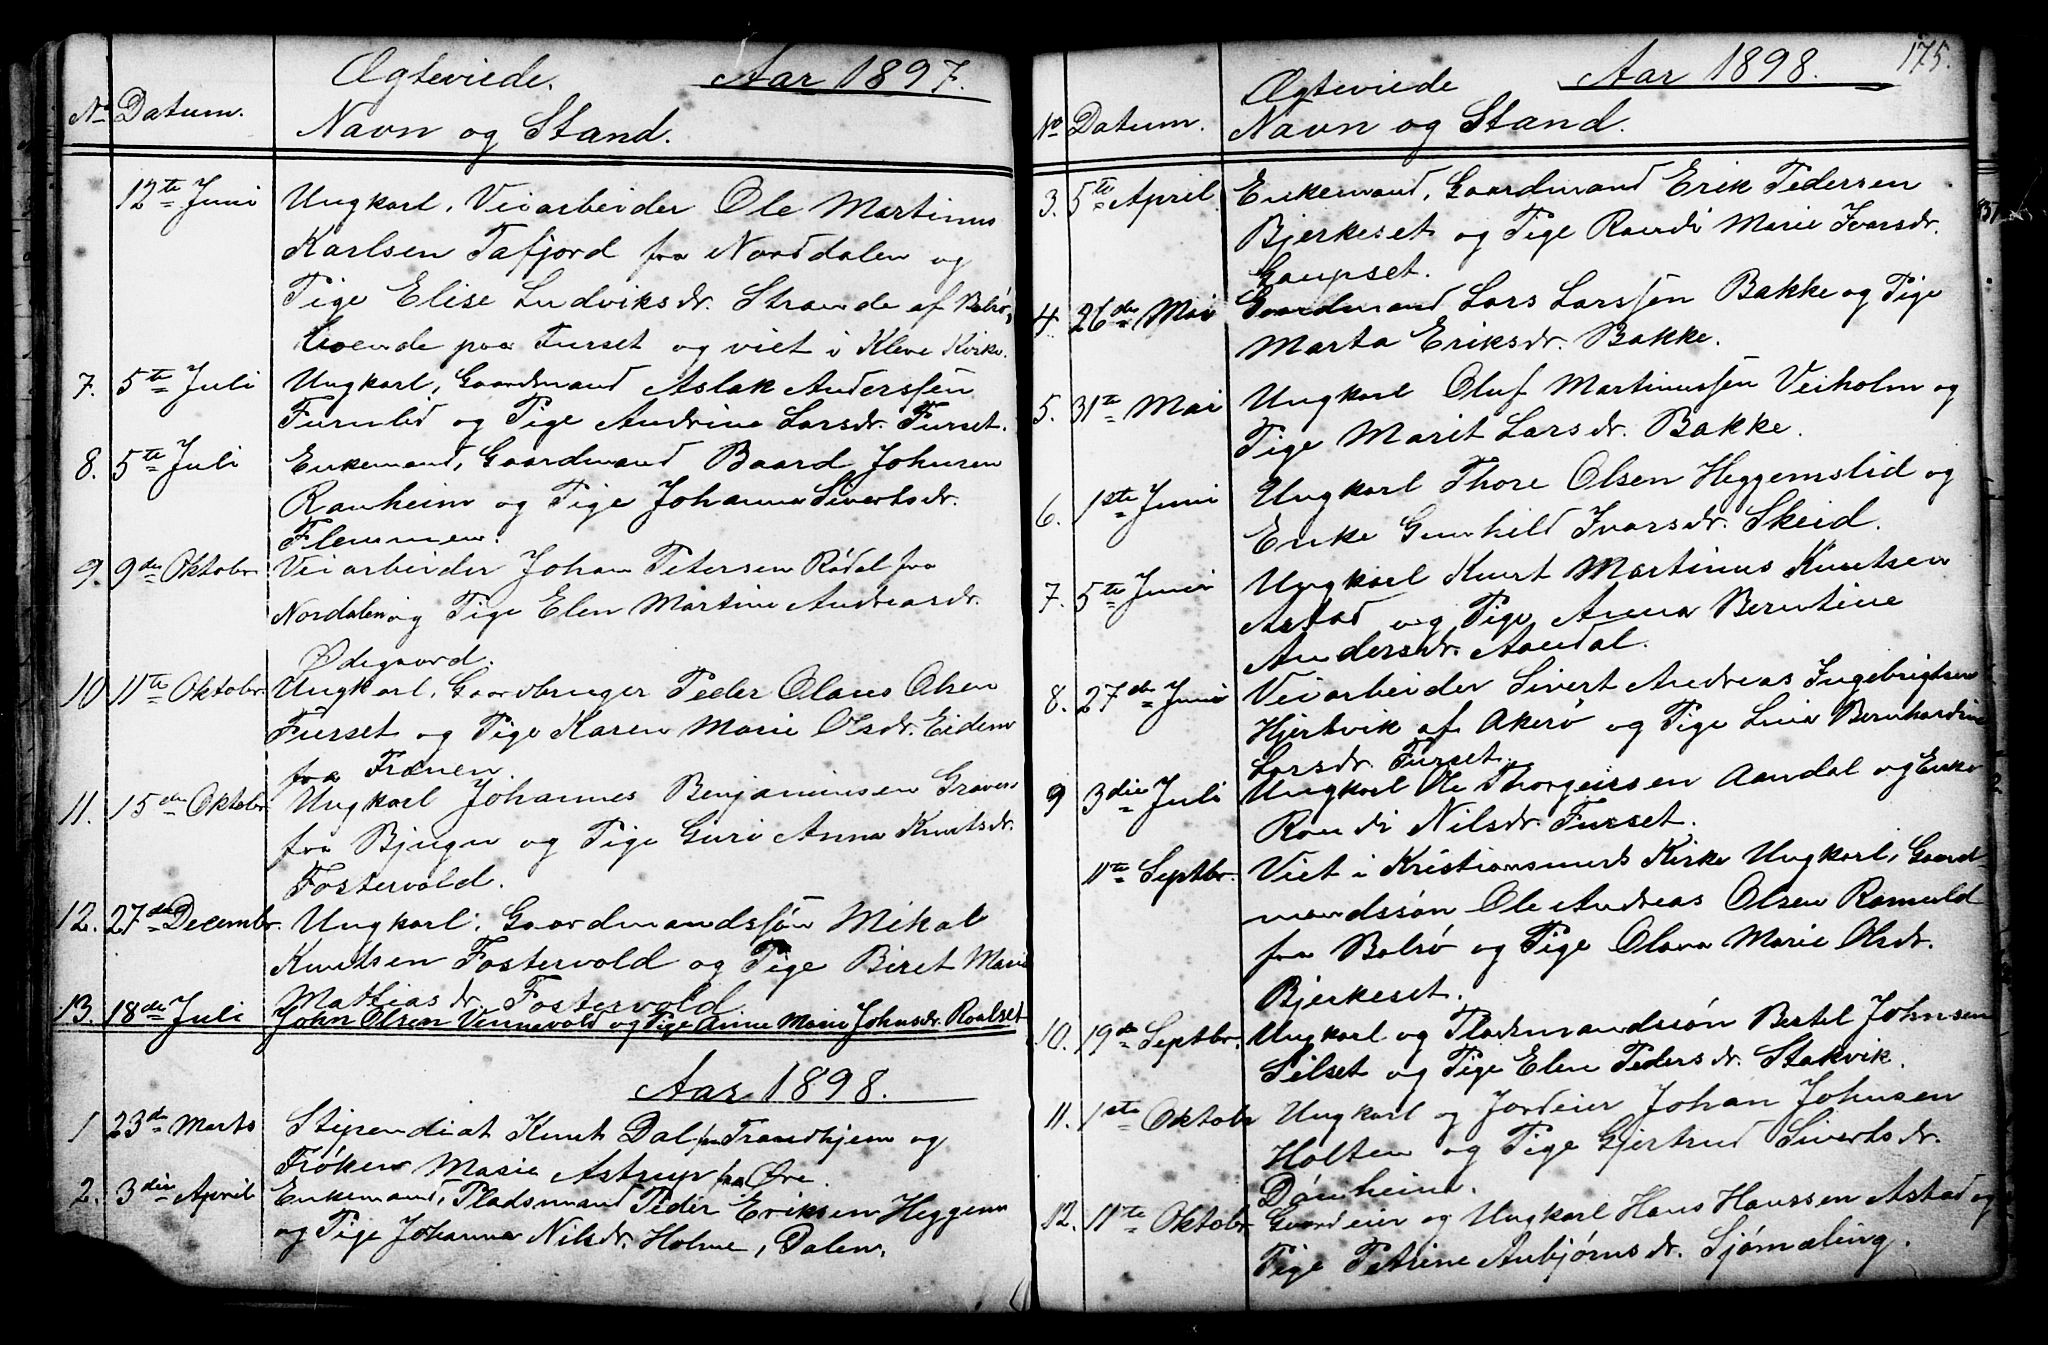 Ægteviede. Aar 1897.
No Datum. Navn og Stand.
12te Juni Ungkarl, Veiarbeider Ole Martinus
Karlsen Tafjord fra Norddalen og
Pige Elise Ludviksdr. Strande af Bolsø,
boende paa Furset og viet i Kleve Kirke.
7. 5te Juli Ungkarl, Gaardmand Aslak Anderssen
Furulid og Pige Andrine Larsdr. Furset.
8. 5te Juli Enkemand, Gaardmand Baard Johnsen
Ranheim og Pige Johanna Sivertsdr.
Flemmen.
9. 9de Oktobr. Veiarbeider Johan Petersen Rødal fra
Nordalen og Pige Elen Martine Andreasdr.
Ødegaard.
10 11te Oktobr. Ungkarl, Gaardbruger Peder Olaus Olsen
Furset og Pige Karen Marie Olsdr. Eidem
fra Frænen.
11. 15de Oktobr. Ungkarl Johannes Benjaminsen Graven
fra Bjugn og Pige Guri Anna Knutsdr.
Fostervold.
12. 27de Decembr. Ungkarl, Gaardmandssøn Mikal
Knutsen Fostervold og Pige Beret Marie
Mathiasdr. Fostervold.
13. 18de Juli John Olsen Vennevold og Pige Anne Marie Johnsdr. Roalset
Aar 1898.
1 23de Marts Stipendiat Knut Dal fra Trondhjem og
Frøken Marie Astrup fra Øre.
2. 3die April Enkemand, Pladsmand Peder Eriksen Heggem
og Pige Johanna Nilsdr. Holme, Dalen.
175.
Ægteviede Aar 1898.
No Datum. Navn og Stand.
3. 5te April. Enkemand, Gaardmand Erik Pedersen
Bjerkeset og Pige Randi Marie Ivarsdr.
Gaupset.
4. 26de Mai Gaardmand Lars Larssen Bakke og Pige
Marta Eriksdr. Bakke.
5. 31te Mai Ungkarl Oluf Martinussen Veiholm og
Pige Marit Larsdr. Bakke.
6. 1ste Juni Ungkarl Thore Olsen Heggemslid og
Enke Gunhild Ivarsdr. Skeid.
7. 5te Juni Ungkarl Knut Martinus Knutsen
Astad og Pige Anna Berntine
Andersdr. Aandal.
8. 27de Juni Veiarbeider Sivert Andreas Ingebrigtsen
Hjertvik af Akerø og Pige Lina Bernhardine
Larsdr. Furset.
9 3die Juli Ungkarl Ole Thorgeirsen Aandal og Enke
Randi Nilsdr. Furset.
11te Septbr. Viet i Kristiansunds Kirke Ungkarl, Gaard
mandssøn Ole Andreas Olsen Romuld
fra Bolsø og Pige Olava Marie Olsdr.
Bjerkeset.
10. 19de Septbr. Ungkarl og Pladsmandssøn Bertel Johnsen
Silset og Pige Elen Pedersdr. Stokvik.
11. 1ste Oktobr Ungkarl og Jordeier Johan Johnsen
Holten og Pige Gjertrud Sivertsdr.
Dønheim.
12. 11te Oktobr. Gaardeier og Ungkarl Hans Hanssen Astad og
Pige Petrine Anbjørnsdr. Sjømæling.